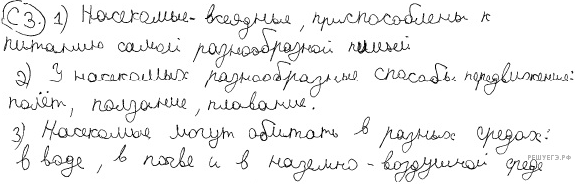 С3. 1) Насекомые - всеядные, приспособлены к
питанию самой разнообразной пищей
2) У насекомых разнообразные способы передвижения:
полёт, ползание, плавание.
3) Насекомые могут обитать в разных средах:
в воде, в почве и в наземно - воздушной среде
РЕШУЕГЭ.РФ